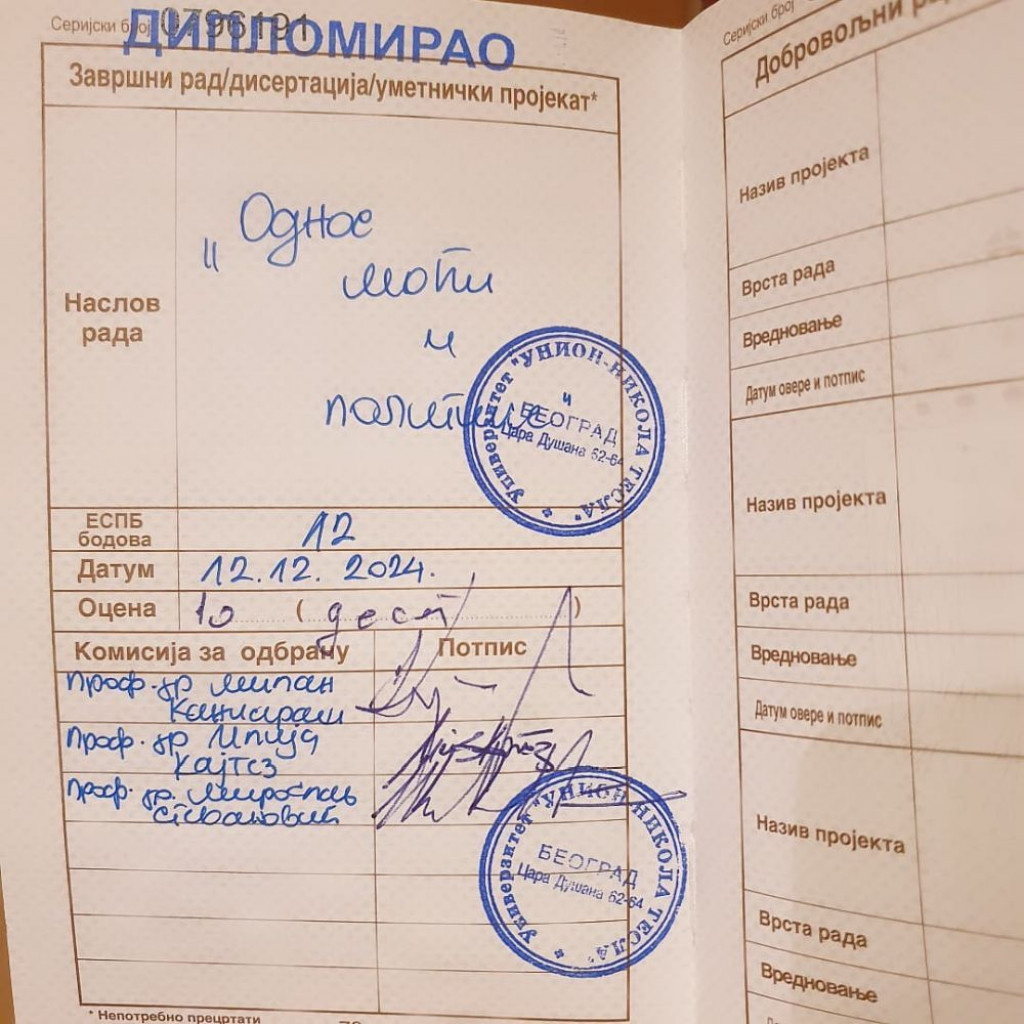 Серијски број 0796191
ДИПЛОМИРАО
Завршни рад/дисертација/уметнички пројекат*
Наслов рада
„Однос
моћи
и
политике
ЕСПБ бодова 12
Датум 12.12. 2024.
Оцена 10 (десет)
Комисија за одбрану Потпис
Проф. др Милан
Проф. др Илија
Кајтез
Проф. др. Мирослав
Стевановић
Универзитет "УНИОН-НИКОЛА ТЕСЛА"
БЕОГРАД
Цара Душана 62-64
Универзитет "УНИОН-НИКОЛА ТЕСЛА"
БЕОГРАД
Цара Душана 62-64
* Непотребно прецртати
Серијски број
Добровољни
Назив пројекта
Врста рада
Вредновање
Датум овере и потпис
Назив пројекта
Врста рада
Вредновање
Датум овере и потпис
Назив пројекта
Врста рада
Вредновање